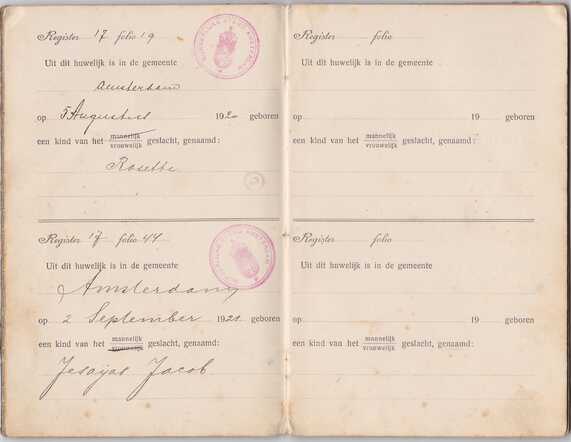 Register 17 folio 19
Uit dit huwelijk is in de gemeente
Amsterdam
op 5 Augustus 1920 geboren
een kind van het mannelijk
vrouwelijk geslacht, genaamd:
Rosette
Register 17 folio 44
Uit dit huwelijk is in de gemeente
Amsterdam
op 2 September 1921 geboren
een kind van het mannelijk
vrouwelijk geslacht, genaamd:
Jesajas Jacob
Register folio
Uit dit huwelijk is in de gemeente
op 19 geboren
een kind van het mannelijk
vrouwelijk geslacht, genaamd:
Register folio
Uit dit huwelijk is in de gemeente
op 19 geboren
een kind van het mannelijk
vrouwelijk geslacht, genaamd: